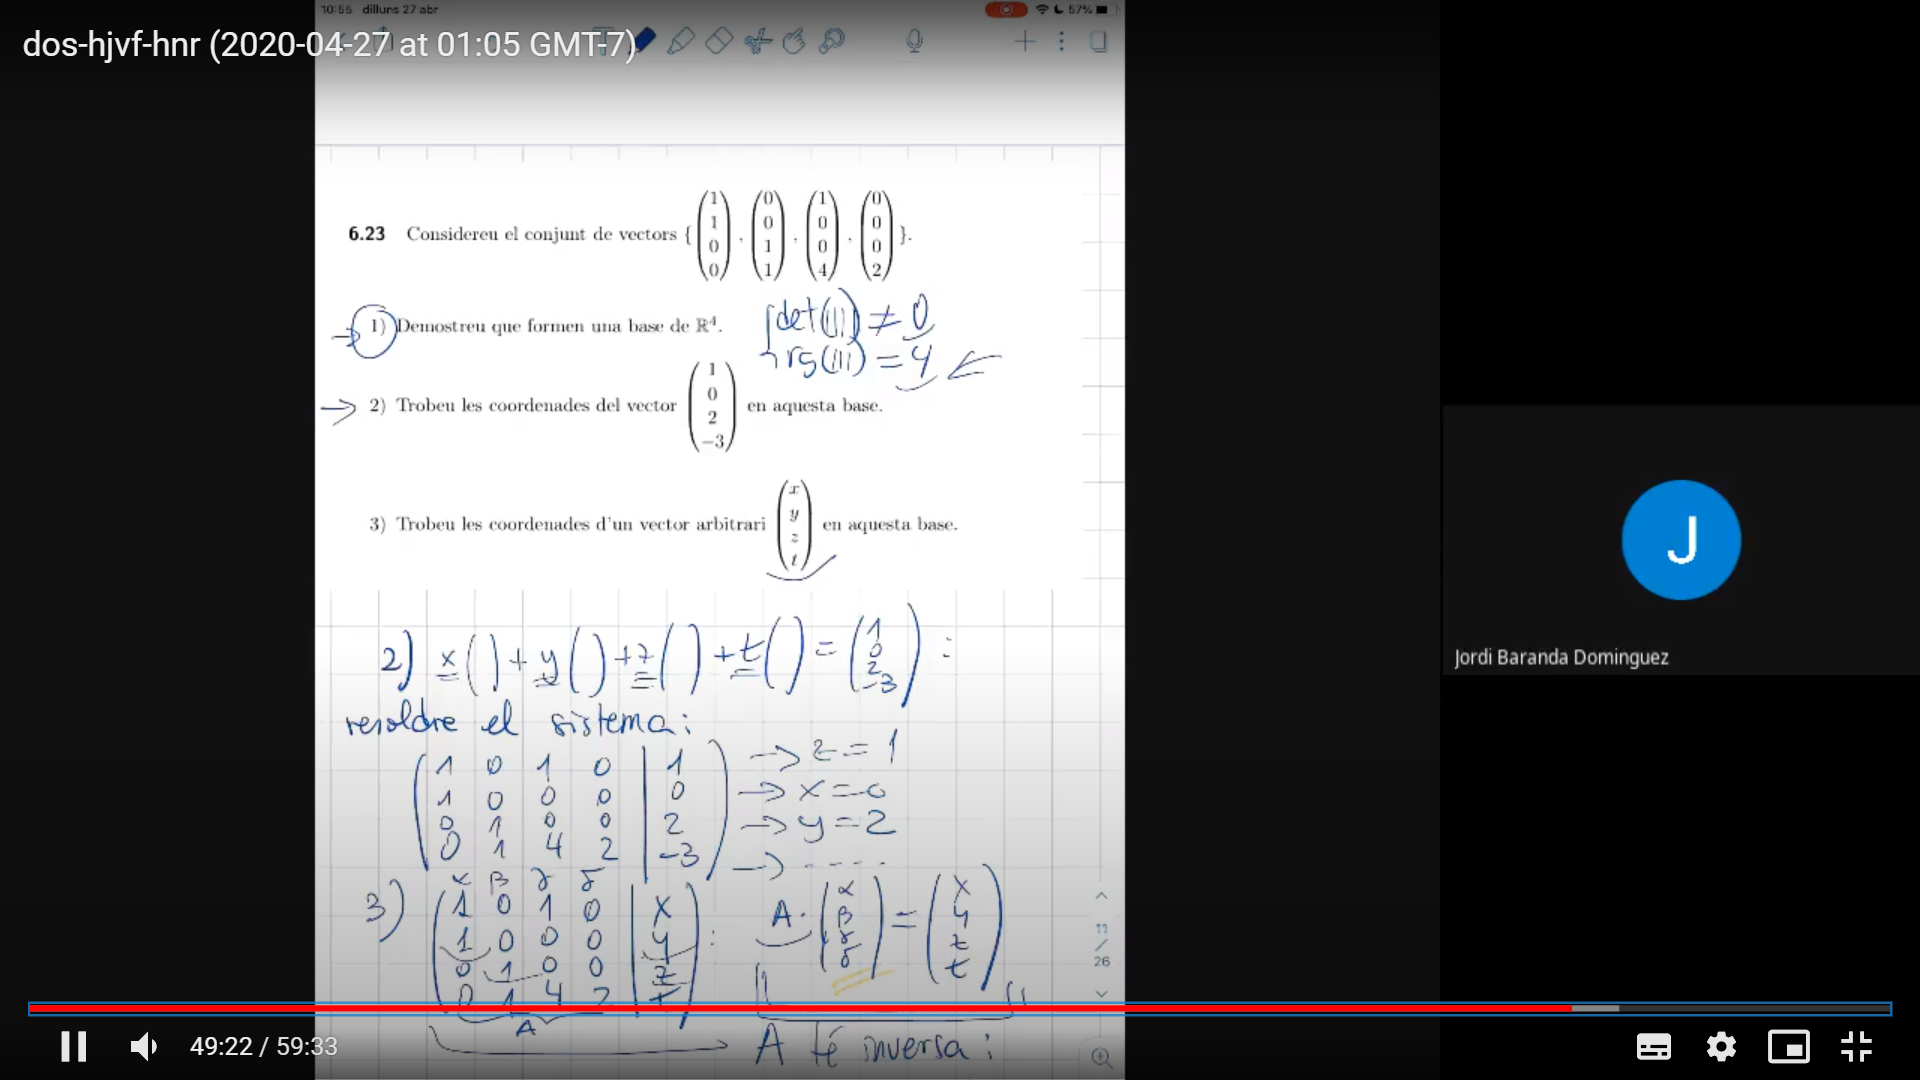 10:55 dilluns 27 abr
57%
dos-hjvf-hnr (2020-04-27 at 01:05 GMT-7)
6.23 Considereu el conjunt de vectors {(1 1 0 0), (0 0 1 1), (1 0 0 4), (0 0 0 2)}.
1) Demostreu que formen una base de ℝ⁴.
det(|||) ≠ 0
rg(|||) = 4
2) Trobeu les coordenades del vector (1 0 2 −3) en aquesta base.
3) Trobeu les coordenades d'un vector arbitrari (x y z t) en aquesta base.
2) x( ) + y( ) + z( ) + t( ) = (1 0 2 -3) :
resoldre el sistema:
1 0 1 0 | 1 → z = 1
1 0 0 0 | 0 → x = 0
0 1 0 0 | 2 → y = 2
0 1 4 2 | -3 → -----
α β γ δ
3) 1 0 1 0 | x
1 0 0 0 | y :
0 1 0 0 | z
0 1 4 2 | t
A
A · (α β γ δ) = (x y z t)
A té inversa :
11
/
26
J
Jordi Baranda Dominguez
49:22 / 59:33